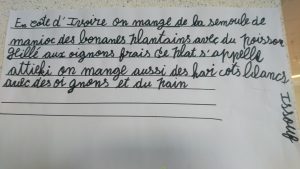 En cote d'Ivoire on mange de la semoule de
manioc des bananes plantains avec du poisson
grillé aux oignons frais ce plat s'appelle
attieki on mange aussi des hari cots blancs
avec des oi gnons et du pain
Issouf